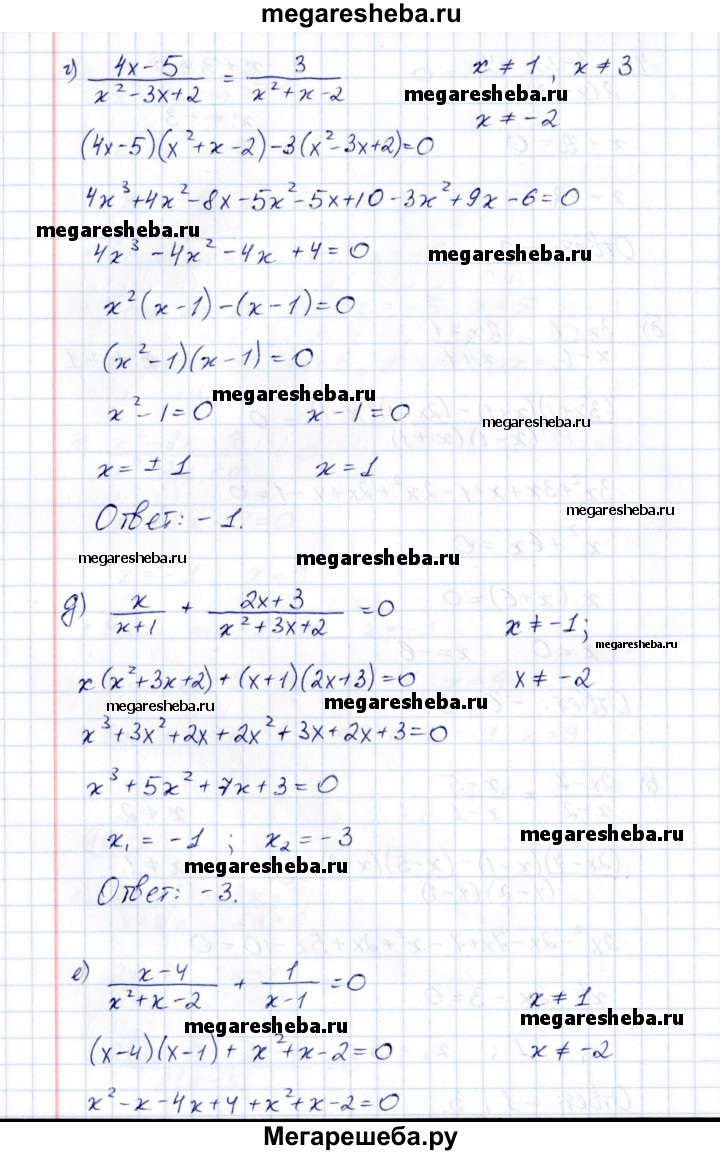 megaresheba.ru
г) (4x-5)/(x²-3x+2) = 3/(x²+x-2) x ≠ 1, x ≠ 3
megaresheba.ru
x ≠ -2
(4x-5)(x²+x-2)-3(x²-3x+2)=0
4x³+4x²-8x-5x²-5x+10-3x²+9x-6=0
megaresheba.ru
4x³-4x²-4x+4=0 megaresheba.ru
x²(x-1)-(x-1)=0
(x²-1)(x-1)=0
megaresheba.ru
x²-1=0 x-1=0 megaresheba.ru
x=±1 x=1
Ответ: -1. megaresheba.ru
megaresheba.ru megaresheba.ru
д) x/(x+1) + (2x+3)/(x²+3x+2) =0 x ≠ -1;
megaresheba.ru
x(x²+3x+2)+(x+1)(2x+3)=0 x ≠ -2
megaresheba.ru megaresheba.ru
x³+3x²+2x+2x²+3x+2x+3=0
x³+5x²+7x+3=0
x₁ = -1; x₂ = -3 megaresheba.ru
megaresheba.ru
Ответ: -3.
е) (x-4)/(x²+x-2) + 1/(x-1) =0 x ≠ 1
megaresheba.ru megaresheba.ru
(x-4)(x-1)+x²+x-2=0 x ≠ -2
x²-x-4x+4+x²+x-2=0
Мегарешеба.ру